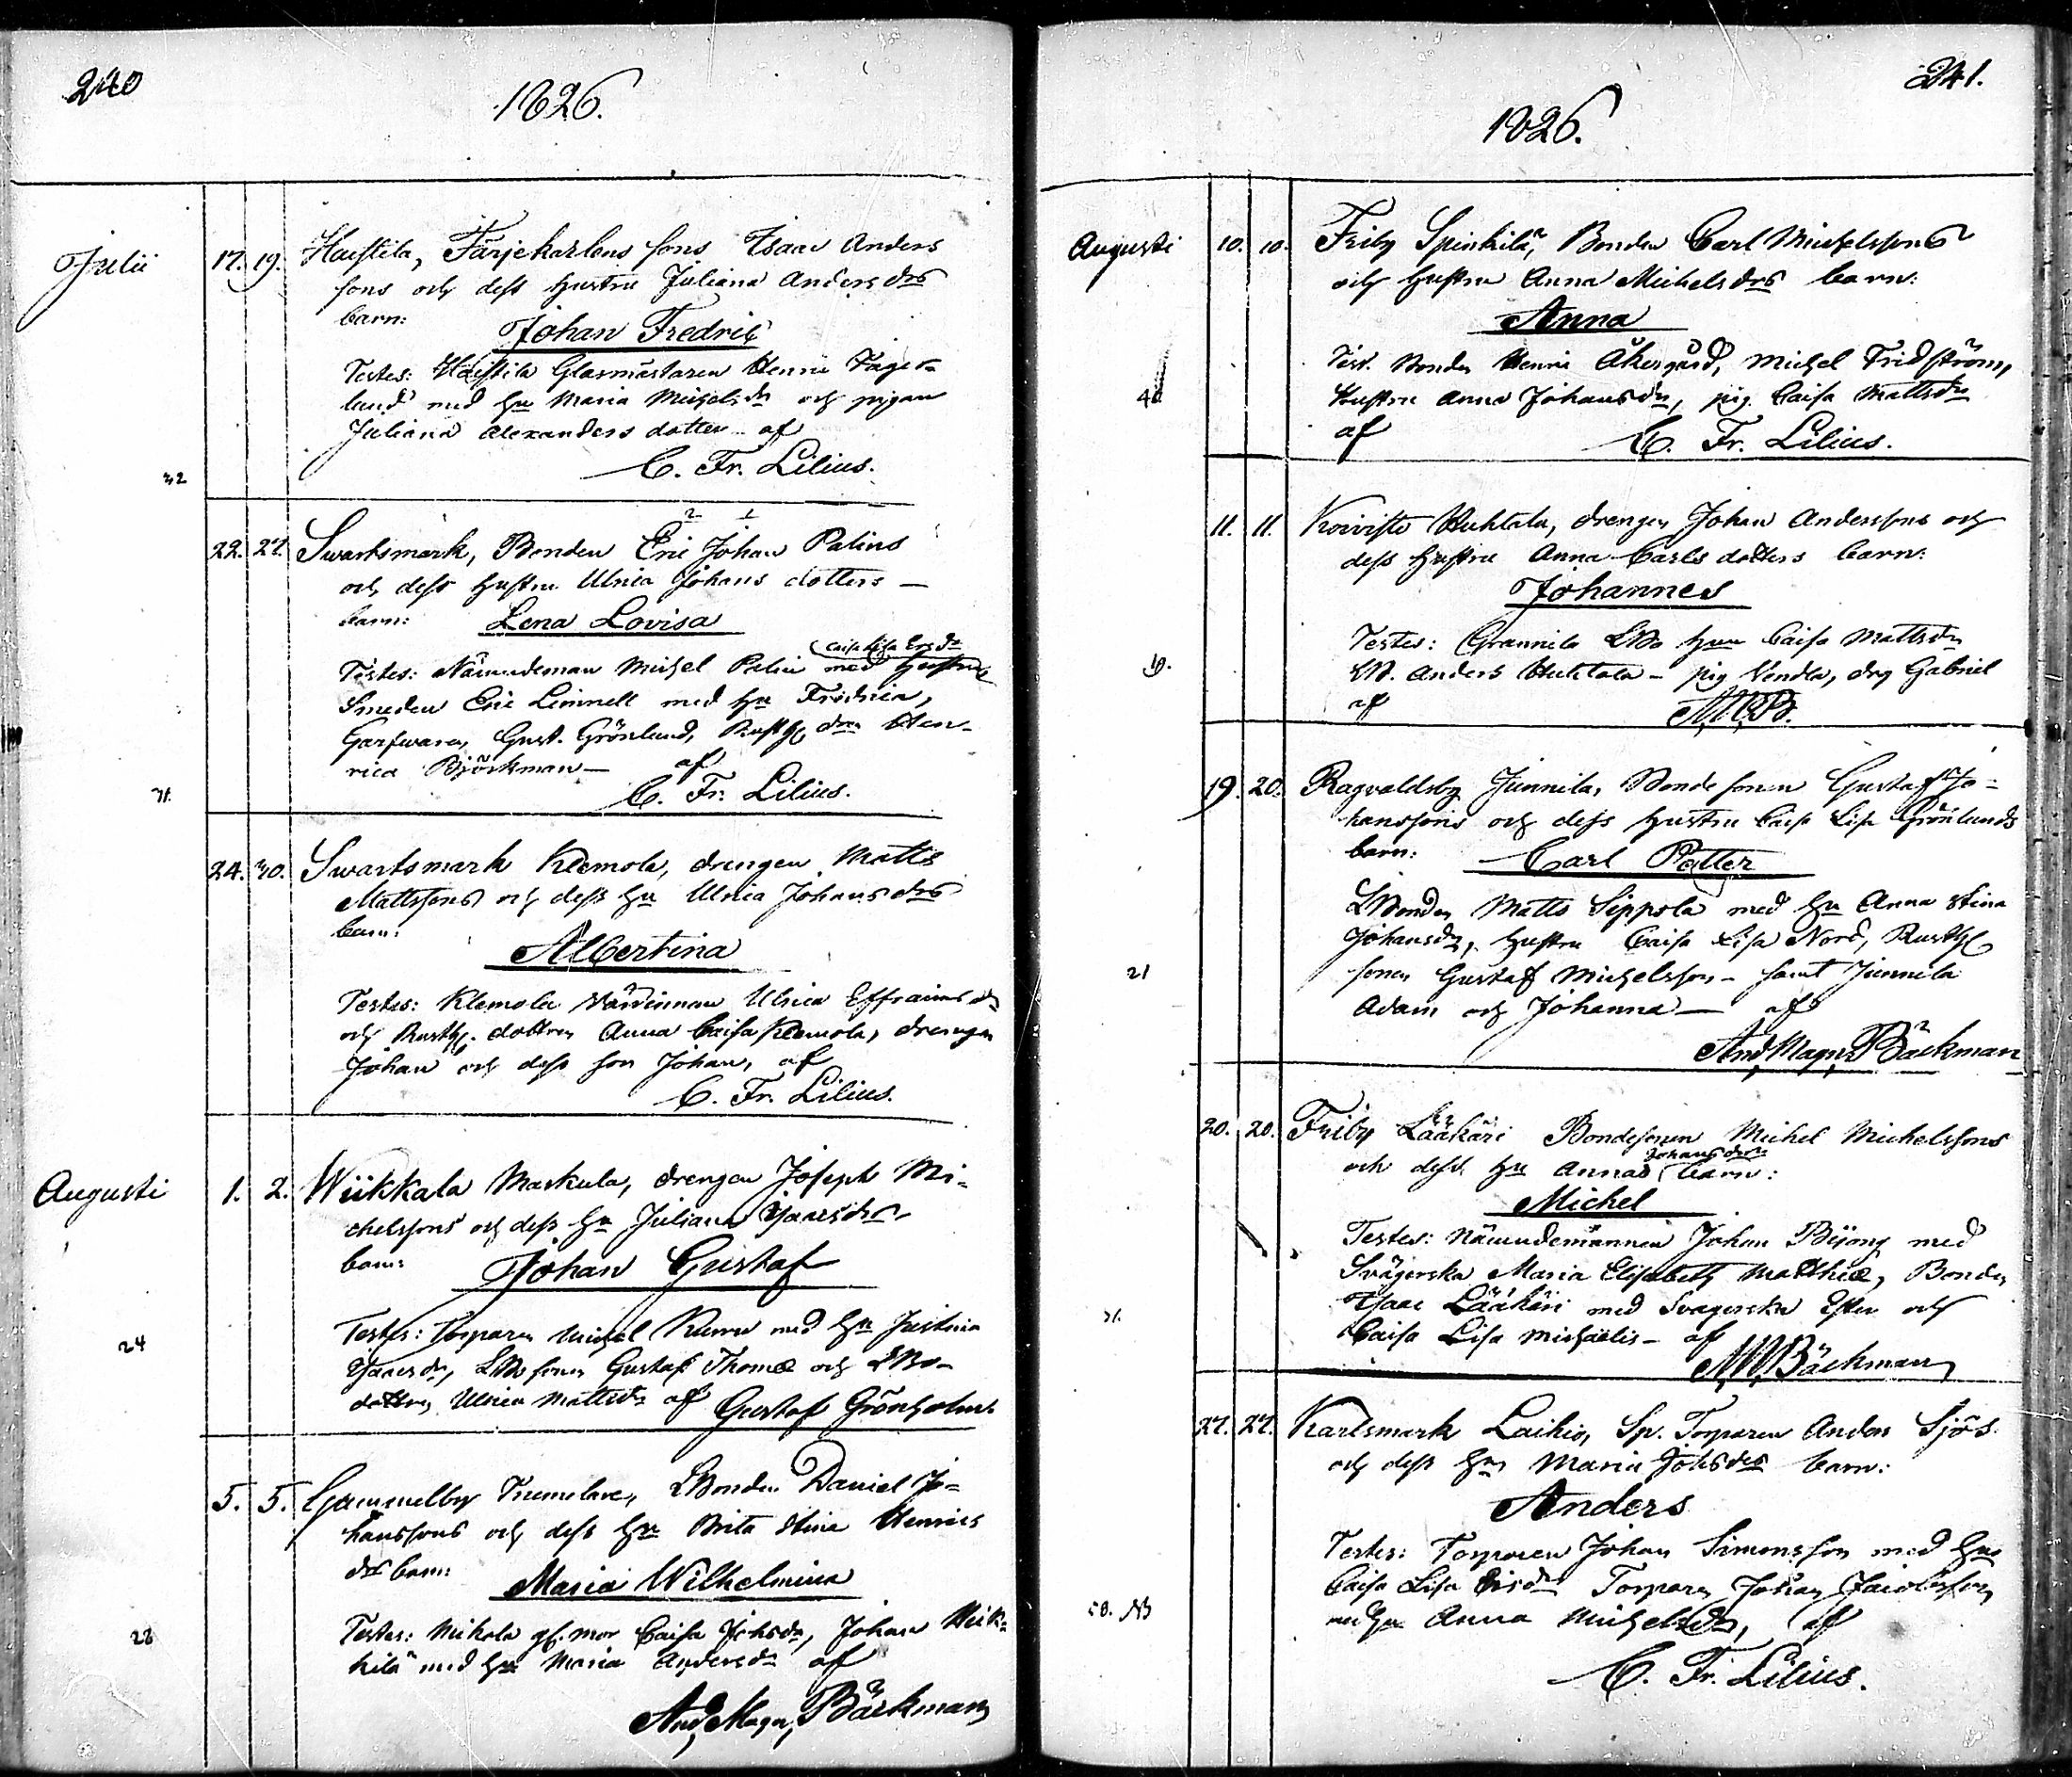 240
1826.
Julii 17. 19. Haistila, Färjekarlens sons Isaac Anders
sons och dess hustru Juliana Anders drs
barn:
Johan Fredric
Testes: Haistila Glasmästaren Henric Fager-
lund med hu Maria Michelsdr och pigan
Juliana Alexanders dotter af
C. Fr. Lilius.
32
22. 27. Swartsmark, Bonden Eric Johan Palins
2 1
och dess hustru Ulrica Johans dotters
barn: Lena Lovisa
Caisa Lisa Ersdr
Testes: Nämndeman Michel Palin med hustru
Smeden Eric Linnell med hu Fredrica,
Garfwaren Gust. Grönlund, Rusth. dren Hen-
rica Björkman af
C. Fr. Lilius.
31.
24. 30. Swartsmark Klemola, drengen Matts
Mattssons och dess hu Ulrica Johansdrs
barn:
Albertina
Testes: Klemola Värdinnan Ulrica Effraimsdr
och Rusth. dottren Anna Caisa Klemola, drengen
Johan och dess son Johan, af
C. Fr. Lilius.
Augusti 1. 2. Wiikkala Markula, drengen Joseph Mi-
chelssons och dess hu Juliana Isacsdrs
barn: Johan Gustaf
Testes: Torparen Michel med hu Justina
Isacsdr, LBdesonen Gustaf Thomæ och LBo-
dottren Ulrica Mattsdr af Gustaf Grönholm
24
5. 5. Gammelby LBonden Daniel Jo-
hanssons och dess hu Brita Stina Henrics
drs barn:
Maria Wilhelmina
Testes: Nikola gl. mor Caisa Johsdr, Johan Heik-
kilä med hu Maria Andersdr af
And. Magn. Bäckman
28
241.
1826.
Augusti 10. 10. Friby Spinkilä, Bonden Carl Michelssons
och hustru Anna Michelsdrs barn:
Anna
Test. Bonden Henric Åkergård, Michel Fridström,
Hustru Anna Johansdr, pig. Caisa Mattsdr
af C. Fr. Lilius.
11. 11. Koivisto Huhtala, drengen Johan Anderssons och
dess hustru Anna Carls dotters barn:
Johannes
Testes: Grannila LBo hun Caisa Mattsdr
LB. Anders Huhtala - pig Vendla, drg Gabriel
af
19.
19. 20. Ragvaldsby Junnila, Bonde sonen Gustaf Jo-
hanssons och dess hustru Caisa Lisa Grönlunds
barn: Carl Petter
LBonden Matts Sippola med hu Anna Stina
Johansdr, hustru Caisa Lisa Nord, Rusth.
sonen Gustaf Michelsson - samt Junnila
Adam och Johanna af
And. Magn. Bäckman
21
20. 20. Friby Lääkäri Bondesonen Michel Michelssons
Johansdrs
och dess hu Annas barn:
Michel
Testes: Nämndemannen Johan Bijong med
Svägerska Maria Elisabeth Matthiæ, Bonden
Isaac Lääkäri med Svägerska Ester och
Caisa Lisa Michaëlis - af
Bäckman
27. 27. Karlsmark Laikio, Sp. Torparen Anders Sjös
och dess hu Maria Johsdrs barn:
Anders
Testes: Torparen Johan Simonsson med hu
Caisa Lisa Ersdr Torparen Johan Jacobsson
med hu Anna Michelsdr, af
C. Fr. Lilius.